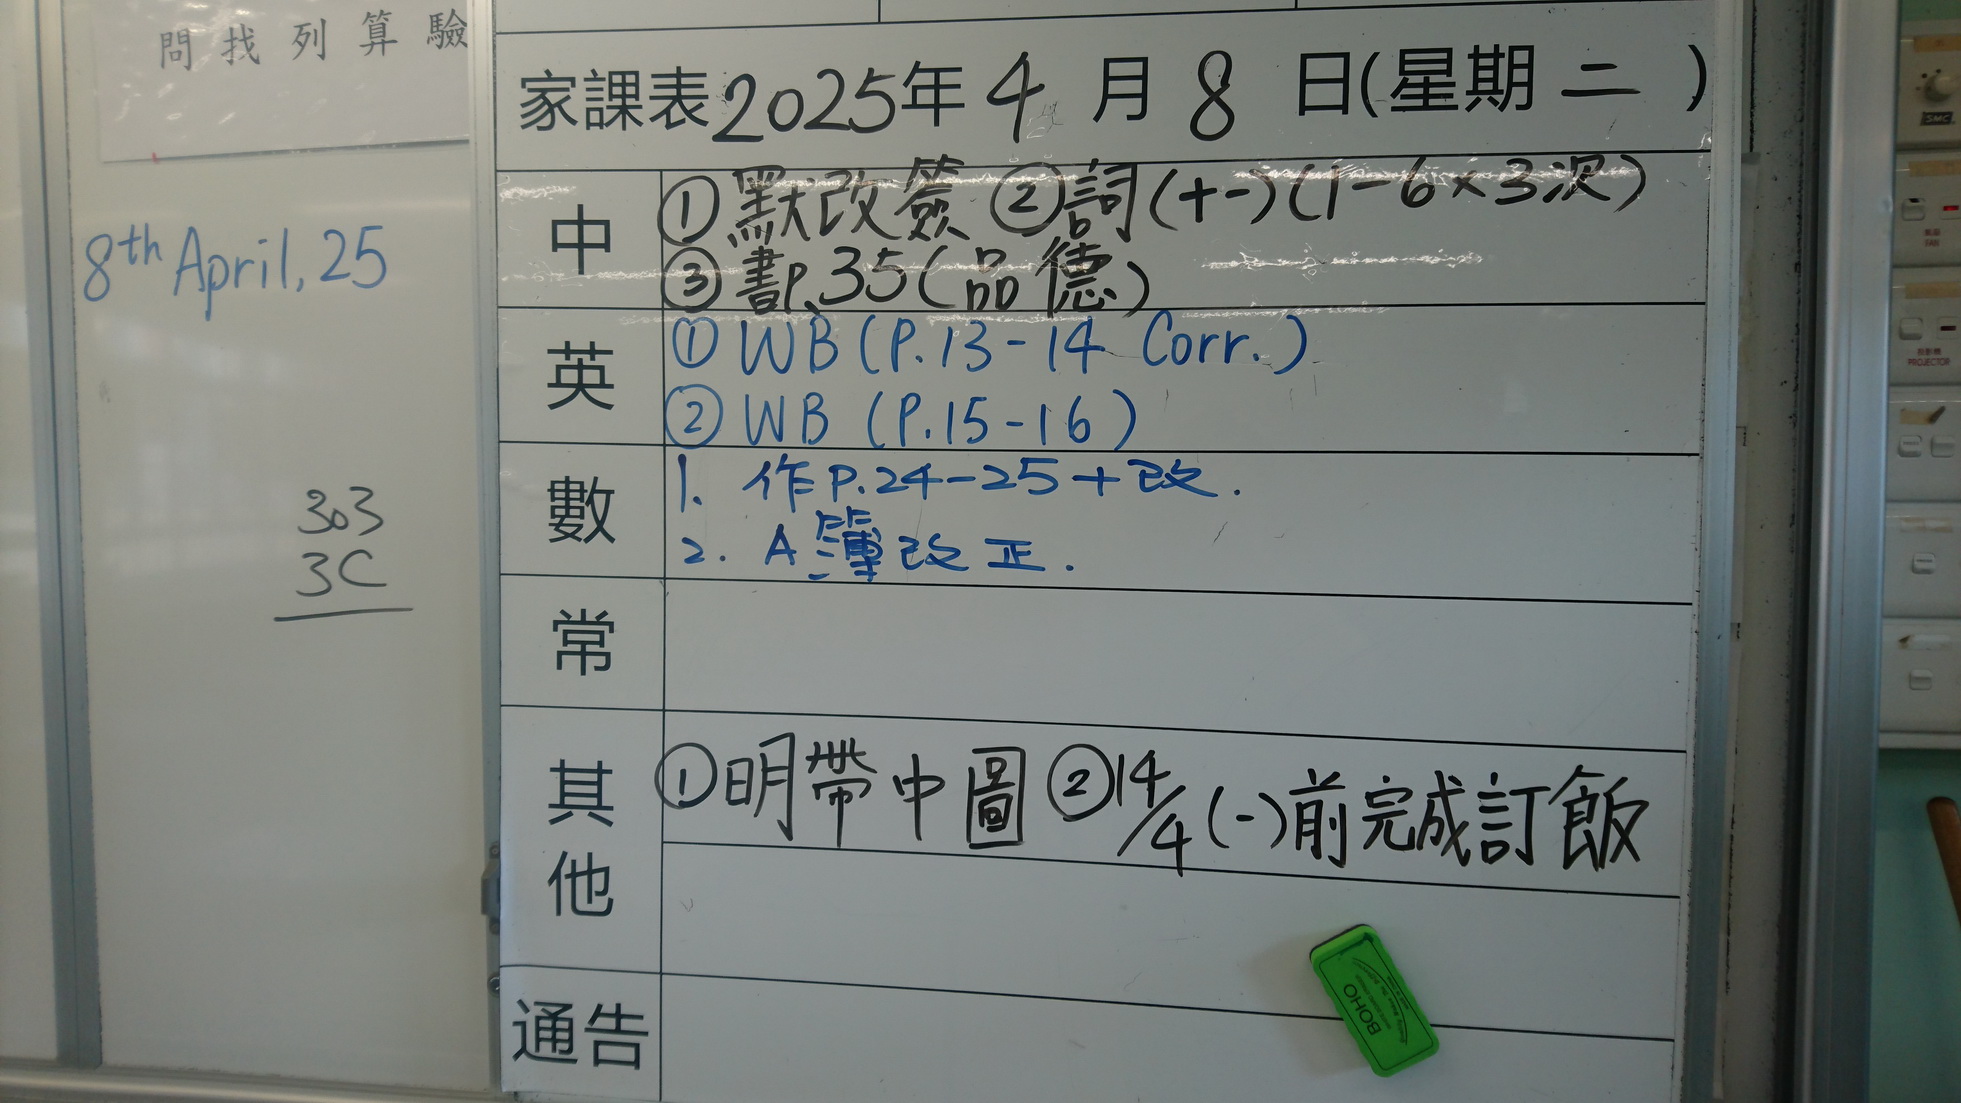 問找列算驗
8th April, 25
303
3C
家課表2025年4月8日(星期二)
中
①默改簽 ②詞(十一)(1-6×3次)
③書P.35(品德)
英
①WB(P.13-14 Corr.)
②WB (P.15-16)
數
1. 作P.24-25+改.
2. A簿改正.
常
其他
①明帶中圖 ②14/4(一)前完成訂飯
通告
BOHO
SMC
FAN
PROJECTOR